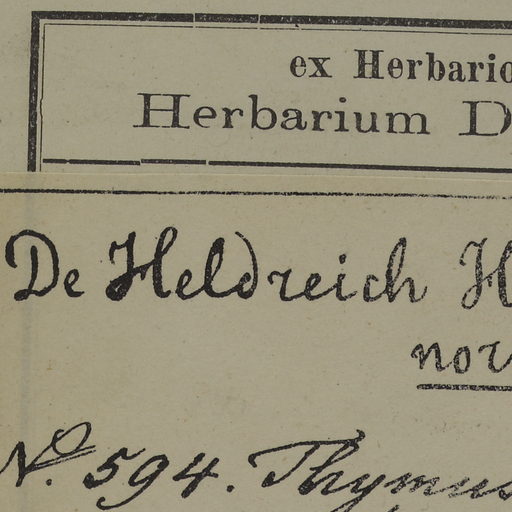 ex Herbario
Herbarium D
De Heldreich H
nor
No. 594. Thymus